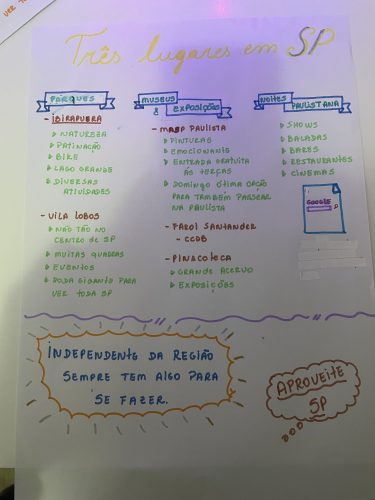 Três lugares em SP
PARQUES
- IBIRAPUERA
NATUREZA
PATINAÇÃO
BIKE
LAGO GRANDE
DIVERSAS
ATIVIDADES
- VILA LOBOS
NÃO TÃO NO
CENTRO DE SP
MUITAS QUADRAS
EVENTOS
RODA GIGANTE PARA
VER TODA SP
MUSEUS
& EXPOSIÇÕES
- MASP PAULISTA
PINTURAS
EMOCIONANTE
ENTRADA GRATUITA
ÀS TERÇAS
DOMINGO ÓTIMA OPÇÃO
PARA TAMBÉM PASSEAR
NA PAULISTA
- FAROL SANTANDER
- CCBB
- PINACOTECA
GRANDE ACERVO
EXPOSIÇÕES
NOITES
PAULISTANA
SHOWS
BALADAS
BARES
RESTAURANTES
CINEMAS
GOOGLE
INDEPENDENTE DA REGIÃO
SEMPRE TEM ALGO PARA
SE FAZER.
APROVEITE
SP